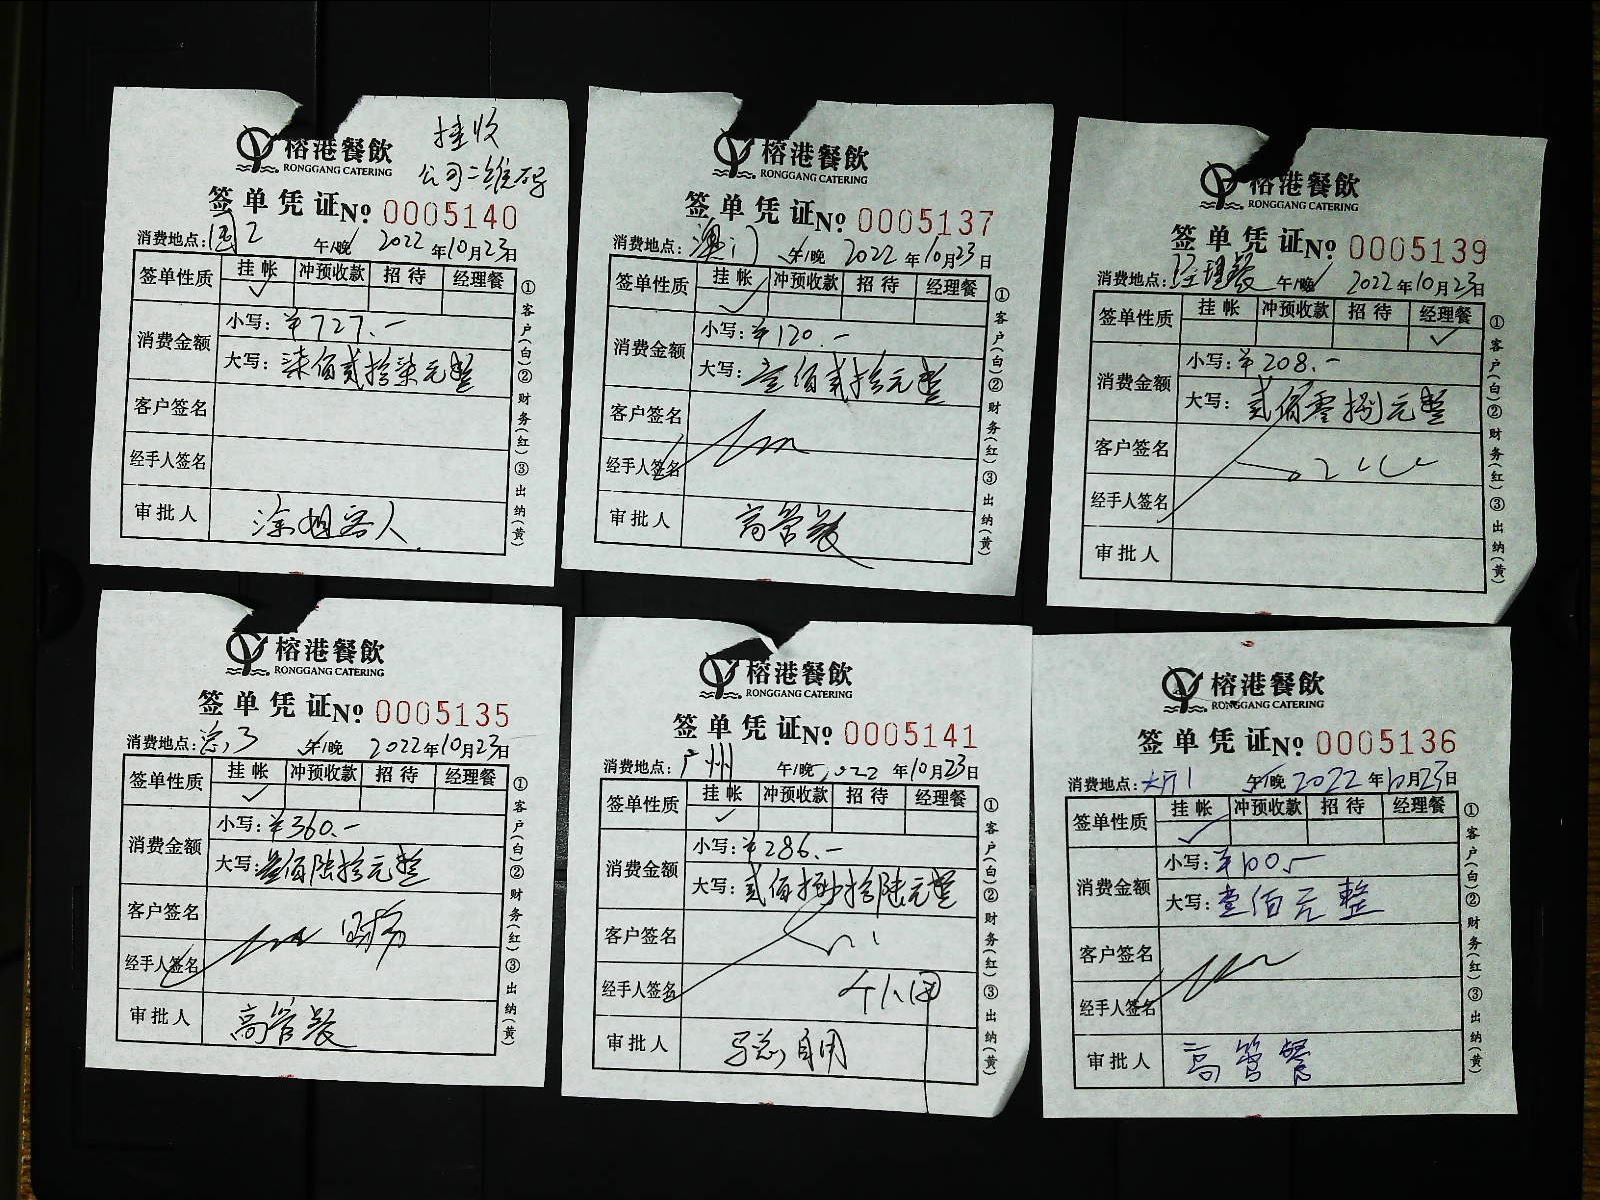 挂收
公司二维码
榕港餐飲
RONGGANG CATERING
签单凭证 No 0005140
消费地点：国2 午/晚 2022年10月23日
签单性质 挂帐 冲预收款 招待 经理餐
✓
消费金额 小写：¥727.-
大写：柒佰贰拾柒元整
客户签名
经手人签名
审批人 涂姐客人
①客户(白)②财务(红)③出纳(黄)
榕港餐飲
RONGGANG CATERING
签单凭证 No 0005137
消费地点：澳门 午/晚 2022年10月23日
签单性质 挂帐 冲预收款 招待 经理餐
✓
消费金额 小写：¥120.-
大写：壹佰贰拾元整
客户签名
经手人签名
审批人 高管餐
①客户(白)②财务(红)③出纳(黄)
榕港餐飲
RONGGANG CATERING
签单凭证 No 0005139
消费地点：经理餐 午/晚 2022年10月23日
签单性质 挂帐 冲预收款 招待 经理餐
✓
消费金额 小写：¥208.-
大写：贰佰零捌元整
客户签名
经手人签名
审批人
①客户(白)②财务(红)③出纳(黄)
榕港餐飲
RONGGANG CATERING
签单凭证 No 0005135
消费地点：总3 午/晚 2022年10月23日
签单性质 挂帐 冲预收款 招待 经理餐
✓
消费金额 小写：¥360.-
大写：叁佰陆拾元整
客户签名
经手人签名
审批人 高管餐
①客户(白)②财务(红)③出纳(黄)
榕港餐飲
RONGGANG CATERING
签单凭证 No 0005141
消费地点：广州 午/晚 2022年10月23日
签单性质 挂帐 冲预收款 招待 经理餐
✓
消费金额 小写：¥286.-
大写：贰佰捌拾陆元整
客户签名
经手人签名
审批人 马总自用
①客户(白)②财务(红)③出纳(黄)
榕港餐飲
RONGGANG CATERING
签单凭证 No 0005136
消费地点：大厅1 午/晚 2022年10月23日
签单性质 挂帐 冲预收款 招待 经理餐
✓
消费金额 小写：¥100.-
大写：壹佰元整
客户签名
经手人签名
审批人 高管餐
①客户(白)②财务(红)③出纳(黄)